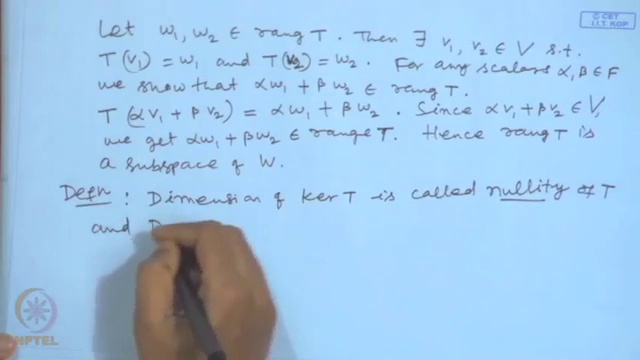 © CET
I.I.T. KGP
Let w₁, w₂ ∈ rang T. Then ∃ v₁, v₂ ∈ V s.t.
T(v₁) = w₁ and T(v₂) = w₂. For any scalars α, β ∈ F
we show that αw₁ + βw₂ ∈ rang T.
T(αv₁ + βv₂) = αw₁ + βw₂. Since αv₁ + βv₂ ∈ V,
we get αw₁ + βw₂ ∈ range T. Hence rang T is
a subspace of W.
Defn: Dimension of ker T is called nullity of T
and D
NPTEL